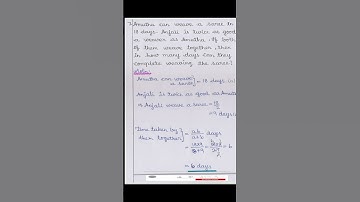 7. Amutha can weave a saree in
18 days. Anjali is twice as good
a weaver as Amutha. If both
of them weave together, then
In how many days can they
complete weaving the saree?
Amutha can weave
a saree } = 18 days (a)
Anjali is twice as good as Amutha
Anjali weave a saree = 18/2
= 9 days
Time taken by
them together } = ab/a+b days
= 18x9/18+9 = 18x9/27 = 6
= 6 days